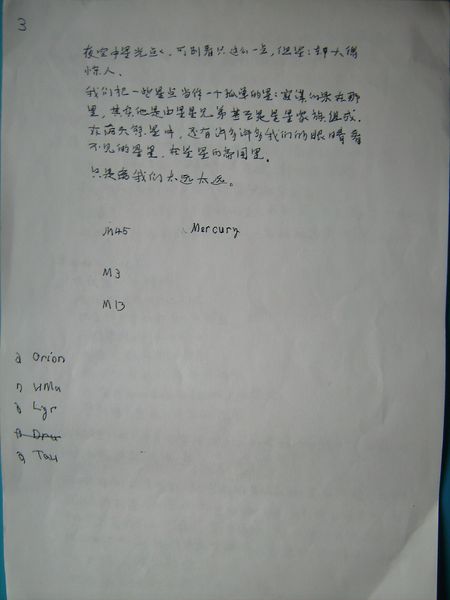 3
夜空中星光点点，可别看只这么一点，但是：却大得
惊人。
我们把一些星点当作一个孤单的星：寂寞的呆在那
里，其实他是由星星兄弟甚至是星星家族组成．
在满天繁星中，还有许多许多我们的眼睛看
不见的星星，在星星的帝国里。
只是离我们太远太远。
M45 Mercury
M3
M13
Orion
UMa
Lyr
Dra
Tau